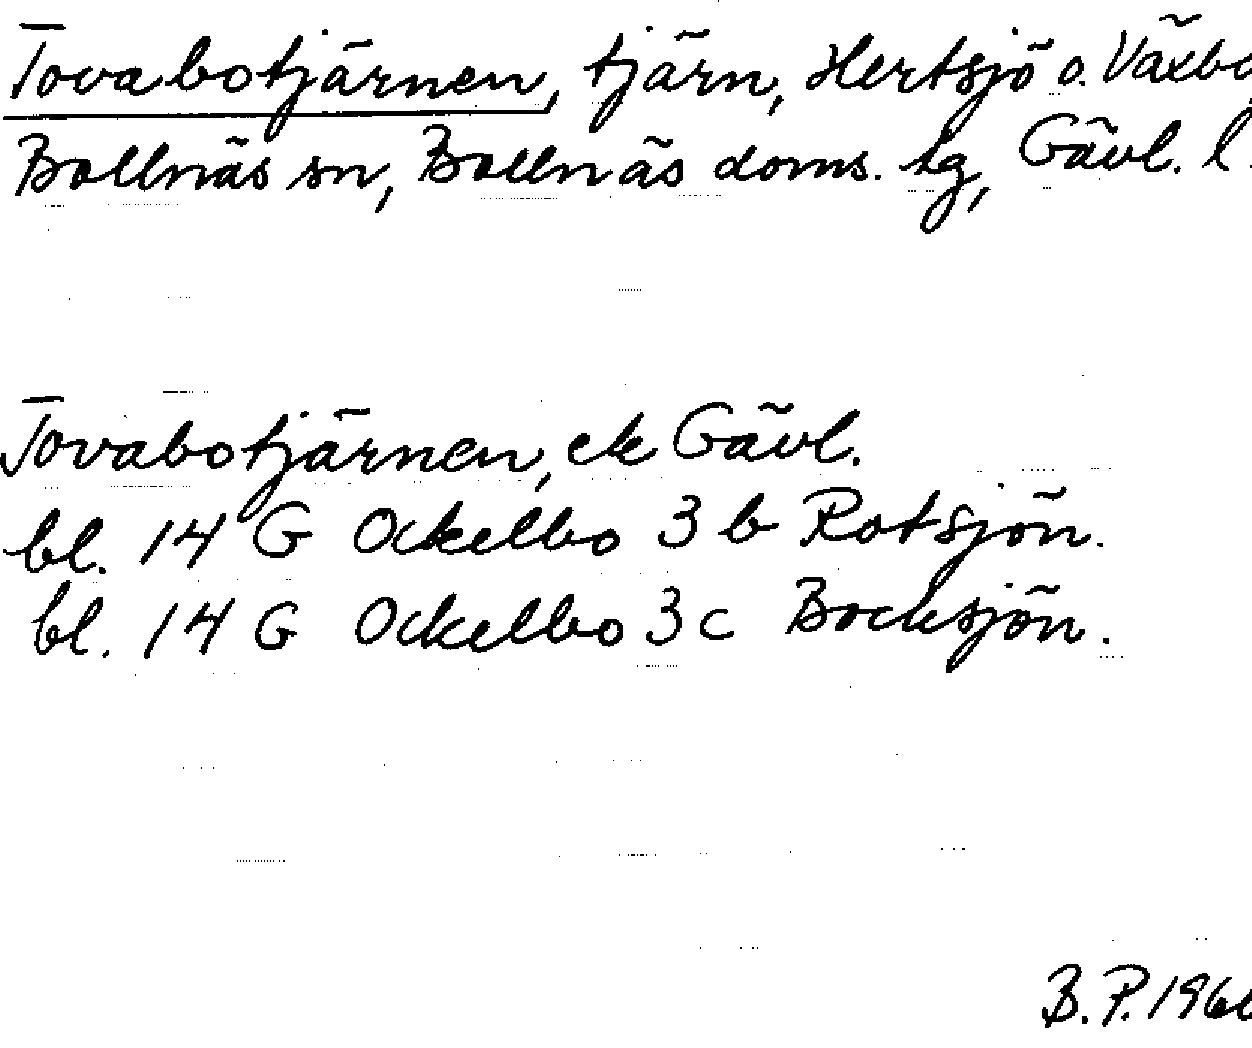 Tovabotjärnen, tjärn, Hertsjö o. Växbo,
Bollnäs sn, Bollnäs doms. tg, Gävl. l.
Tovabotjärnen, ek Gävl.
bl. 14 G Ockelbo 3 b Rotsjön.
bl. 14 G Ockelbo 3 c Bocksjön.
B. P. 196